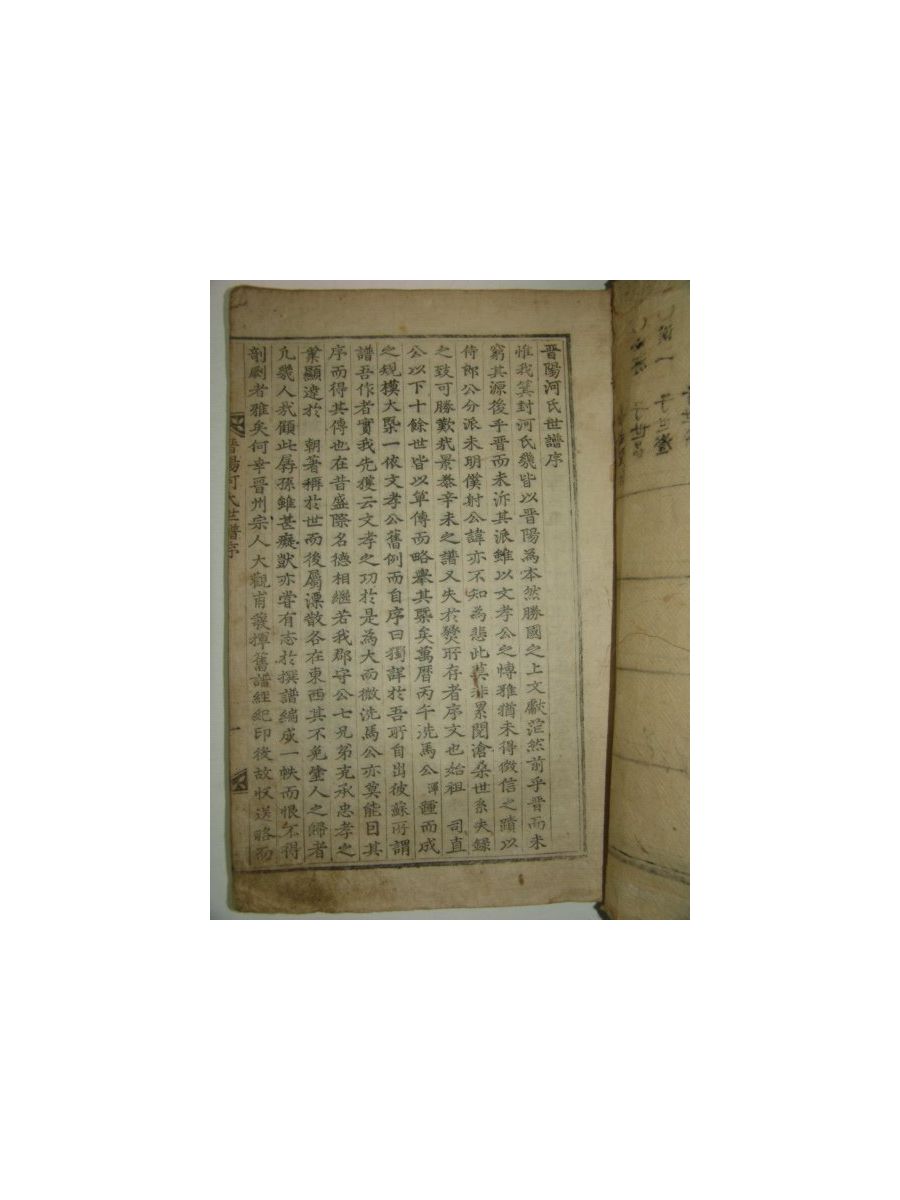 晋陽河氏世譜序
惟我箕封河氏幾皆以晋陽為本然勝國之上文獻茫然前乎晋而未
窮其源後乎晋而未泝其派雖以文孝公之愽雅猶未得徴信之蹟以
侍郎公分派未明僕射公諱亦不知為悲此莫非累閱滄桑世系失錄
之致可勝歎㢤景泰辛未之譜又失於燹所存者序文也始祖 司直
公以下十餘世皆以單傳而略擧其槩矣萬曆丙午洗馬公渾踵而成
之規模大槩一依文孝公舊例而自序曰獨詳於吾所自出彼蘇所謂
譜吾作者實我先獲云文孝之功於是為大而微洗馬公亦莫能目其
序而得其傳也在昔盛際名德相繼若我郡守公七兄弟克承忠孝之
業顯達於 朝著稱於世而後屬漂散各在東西其不免塗人之歸者
凡幾人㢤顧此孱孫雖甚癡獃亦嘗有志於撰譜編成一帙而恨不得
剞劂者雅矣何幸晋州宗人大觀甫裒揮舊譜經紀印後故收送略而
晋陽河氏世譜序 一